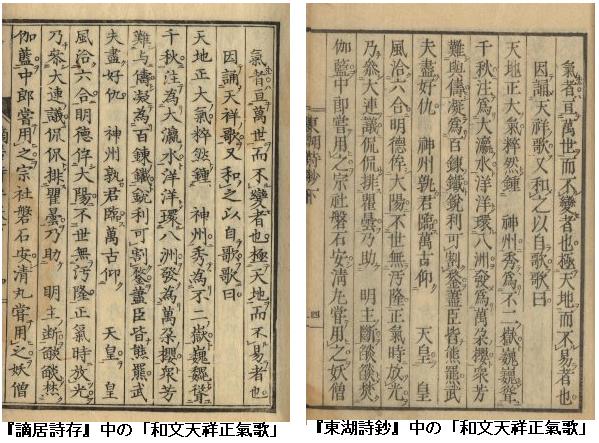 氣者亘萬世而不變者也極天地而不易者也
因誦天祥歌又和之以自歌歌曰
天地正大氣粹然鍾 神州秀為不二嶽巍巍聳
千秋注為大瀛水洋洋環八洲發為萬朶櫻衆芳
難與儔凝為百鍊鐵銳利可割鍪藎臣皆熊羆武
夫盡好仇 神州孰君臨萬古仰 天皇 皇
風洽六合明德侔大陽不世無汚隆正氣時放光
乃參大連議侃侃排瞿曇乃助 明主断燄燄焚
伽藍中郎嘗用之宗社磐石安清丸嘗用之妖僧
『謫居詩存』中の「和文天祥正氣歌」
氣者亘萬世而不變者也極天地而不易者也
因誦天祥歌又和之以自歌歌曰
天地正大氣粹然鍾 神州秀爲不二嶽巍巍聳
千秋注爲大瀛水洋洋環八洲發爲萬朶櫻衆芳
難與儔凝爲百鍊鐵銳利可割鍪藎臣皆熊羆武
夫盡好仇 神州孰君臨萬古仰 天皇 皇
風洽六合明德侔大陽不世無汚隆正氣時放光
乃參大連議侃侃排瞿曇乃助 明主斷燄燄焚
伽藍中郎嘗用之宗社磐石安清丸嘗用之妖僧
東湖詩鈔
四
『東湖詩鈔』中の「和文天祥正氣歌」